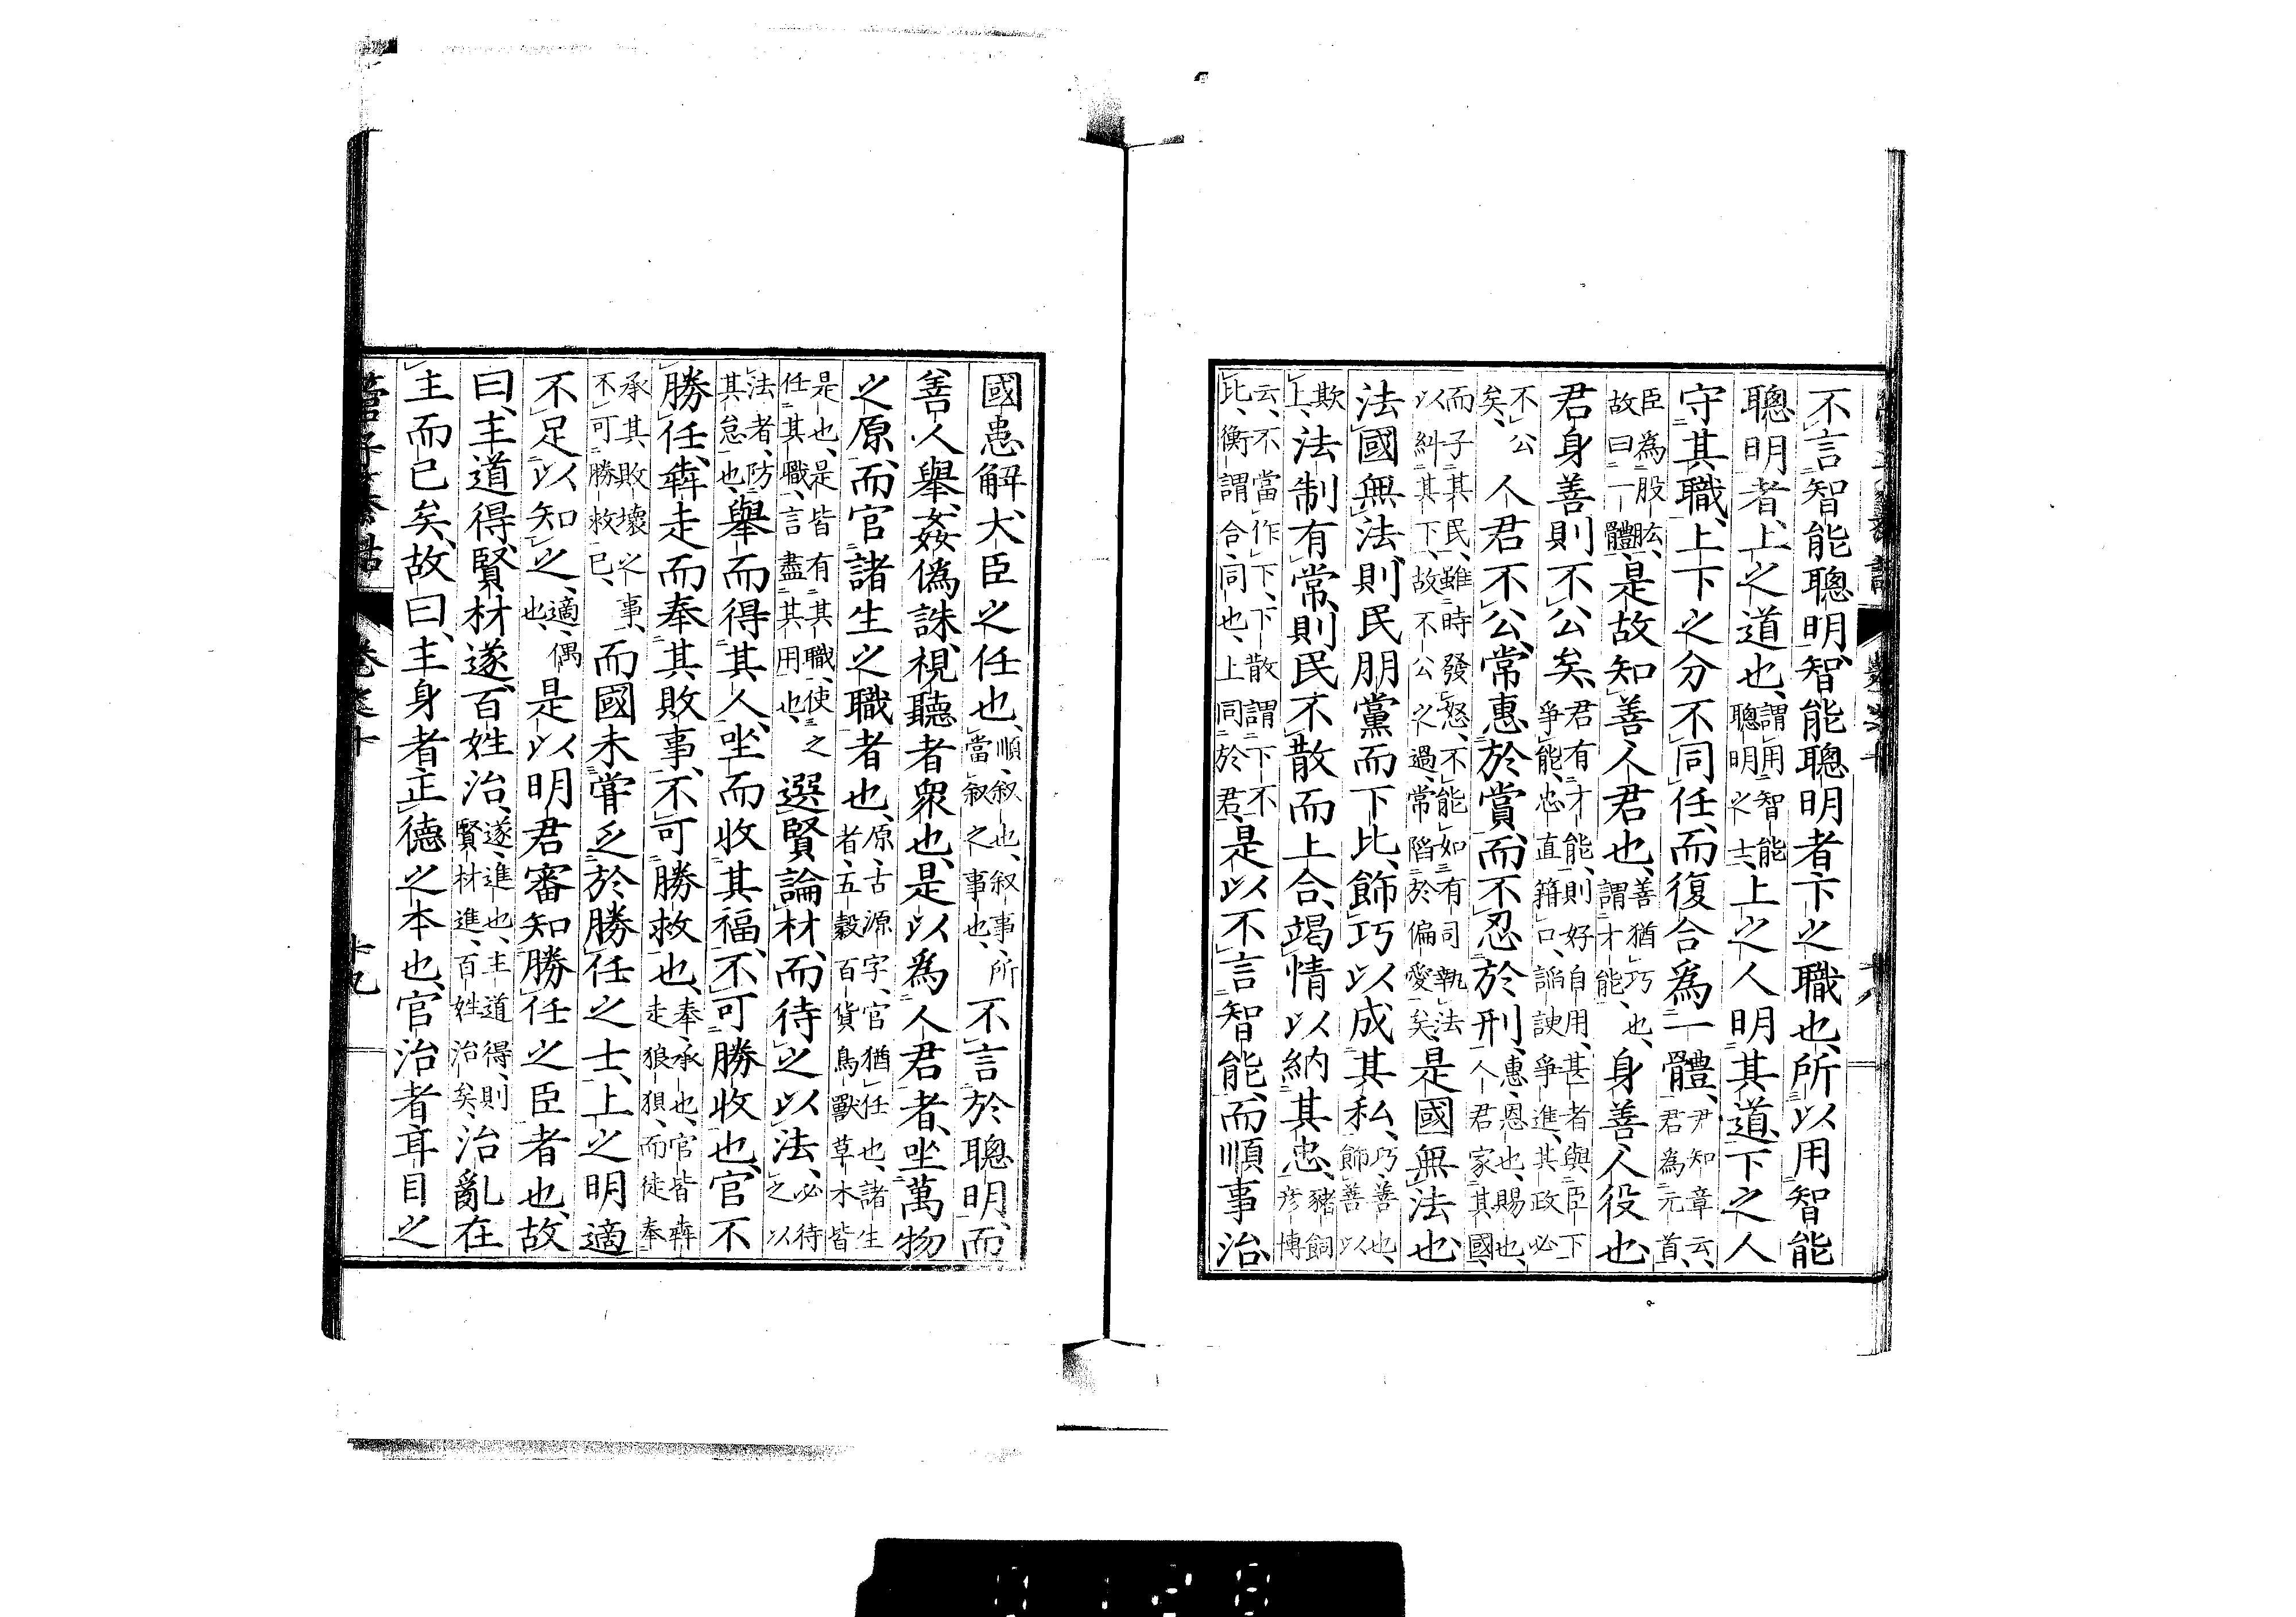 不言智能聰明、智能聰明者、下之職也、所以用智能
聰明者、上之道也、謂用智能聰明之士、上之人明其道、下之人
守其職、上下之分不同任、而復合爲一體、尹知章云、君爲元首、
臣爲股肱、故曰一體、是故知善人君也、善猶巧也、謂才能、身善人役也、
君身善則不公矣、君有才能、則好自用、甚者與臣下爭能、忠直箝口、諂諛爭進、其政必
不公矣、人君不公、常惠於賞、而不忍於刑、惠、恩也、賜也、人君家其國、
而子其民、雖時發怒、不能如有司執法以糾其下、故不公之過、常陷於偏愛矣、是國無法也、
法國無法、則民朋黨而下比、飾巧以成其私、巧、善也、飾善以
欺上、法制有常、則民不散而上合、竭情以納其忠、豬飼彥博
云、不當作下、下散謂下不比、衡謂合、同也、上同於君、是以不言智能、而順事治、
國患解、大臣之任也、順、叙也、叙事、所當叙之事也、不言於聰明、而
善人舉、姦偽誅、視聽者衆也、是以爲人君者、坐萬物
之原、而官諸生之職者也、原、古源字、官猶任也、諸生者、五穀百貨鳥獸草木皆
是也、是皆有其職、使之任其職、言盡其用也、選賢論材、而待之以法、必待之以
法者、防其怠也、舉而得其人、坐而收其福、不可勝收也、官不
勝任、犇走而奉其敗事、不可勝救也、奉、承也、官皆犇走狼狽、而徒奉
承其敗壞之事、不可勝救已、而國未嘗乏於勝任之士、上之明適
不足以知之、適、偶也、是以明君審知勝任之臣者也、故
曰、主道得、賢材遂、百姓治、遂、進也、主道得、則賢材進、百姓治矣、治亂在
主而已矣、故曰、主身者正德之本也、官治者耳目之
卷之十
十九
0128